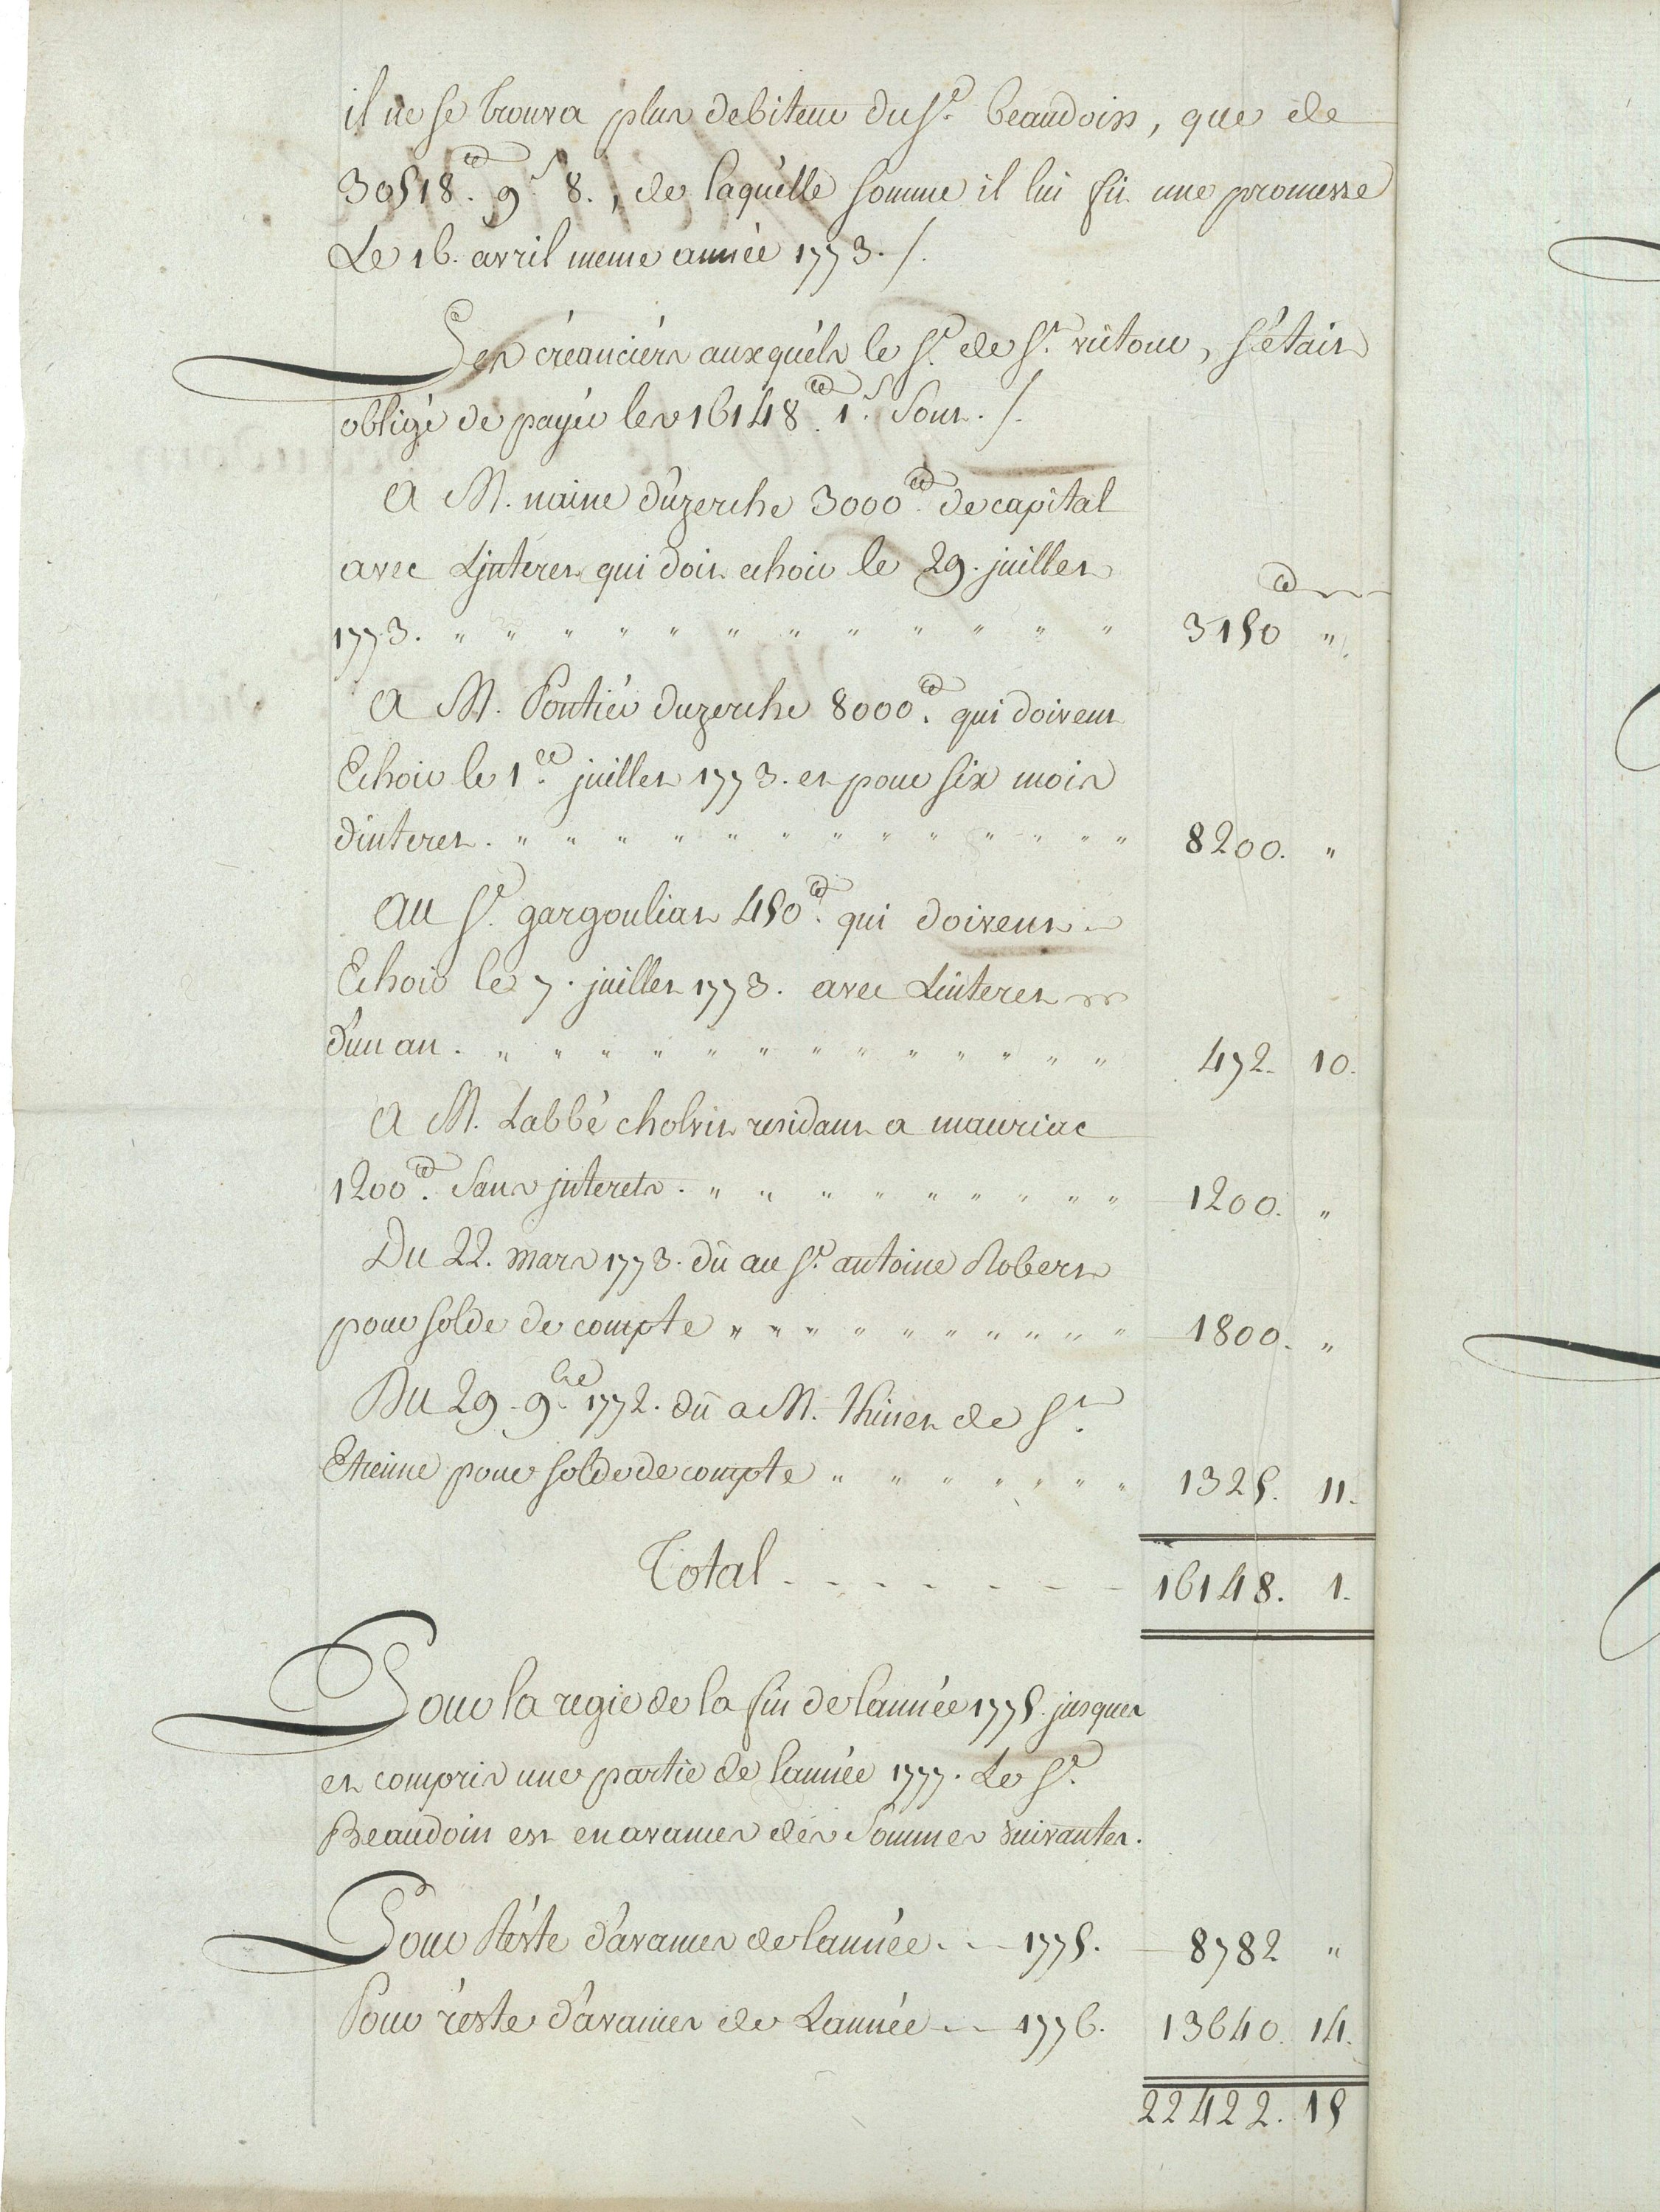 il ne se trouva plus debiteur du Sr. beaudoin, que de
30518.tt 9.s 8., de laquelle somme il lui fit une promesse
Le 16. avril meme année 1773./.
Les créanciérs auxquéls le Sr. de St. victour, s'était
obligé de payér les 16148.tt 1.s Sont./.
A M. naine d'uzerche 3000.tt de capital
avec Ljnteret qui doit echoir le 29. juillet
1773. " " " " " " " " " " " " " 3150 "
A M. Pontiér duzerche 8000.tt qui doivent
Echoir le 1.er juillet 1773. et pour six mois
d'interet. " " " " " " " " " " " " 8200. "
Au Sr. gargoulian 450.tt qui doivent
Echoir le 7. juillet 1773. avec Linteret
d'un an. " " " " " " " " " " " " 472. 10.
A M. Labbé cholvin residant a mauriac
1200.tt Sans jnterets. " " " " " " " " " 1200. "
Du 22. mars 1773. dû au Sr. antoine Robert
pour solde de compte " " " " " " " " " 1800. "
Du 29. 9.bre 1772. dû a M. de St.
Etienne pour solde de compte " " " " " " " 1325. 11.
Total - - - - - - - 16148. 1.
Pour la regie de la fin de lannée 1775. jusques
et compris une partie de lannée 1777. Le Sr.
Beaudoin est en avances dés Sommes suivantes.
Pour Réste d'avances de lannée. - - 1775. 8782 "
Pour réste d'avances de Lannée - - 1776. 13640. 14.
22422. 15